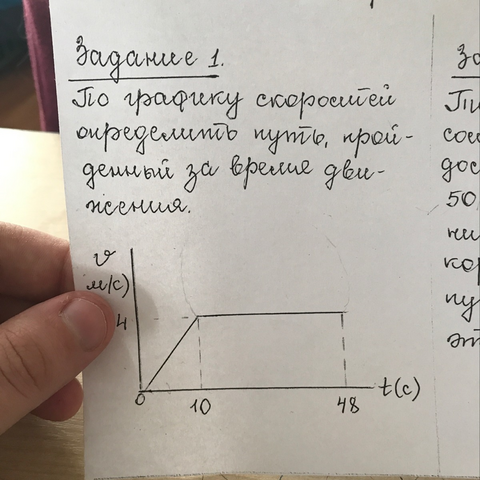 Задание 1.
По графику скоростей
определить путь, прой-
денный за время дви-
жения.
v
м/с)
4
0
10
48
t(с)
За
сои
дос
50
ни
кор
пу
эт